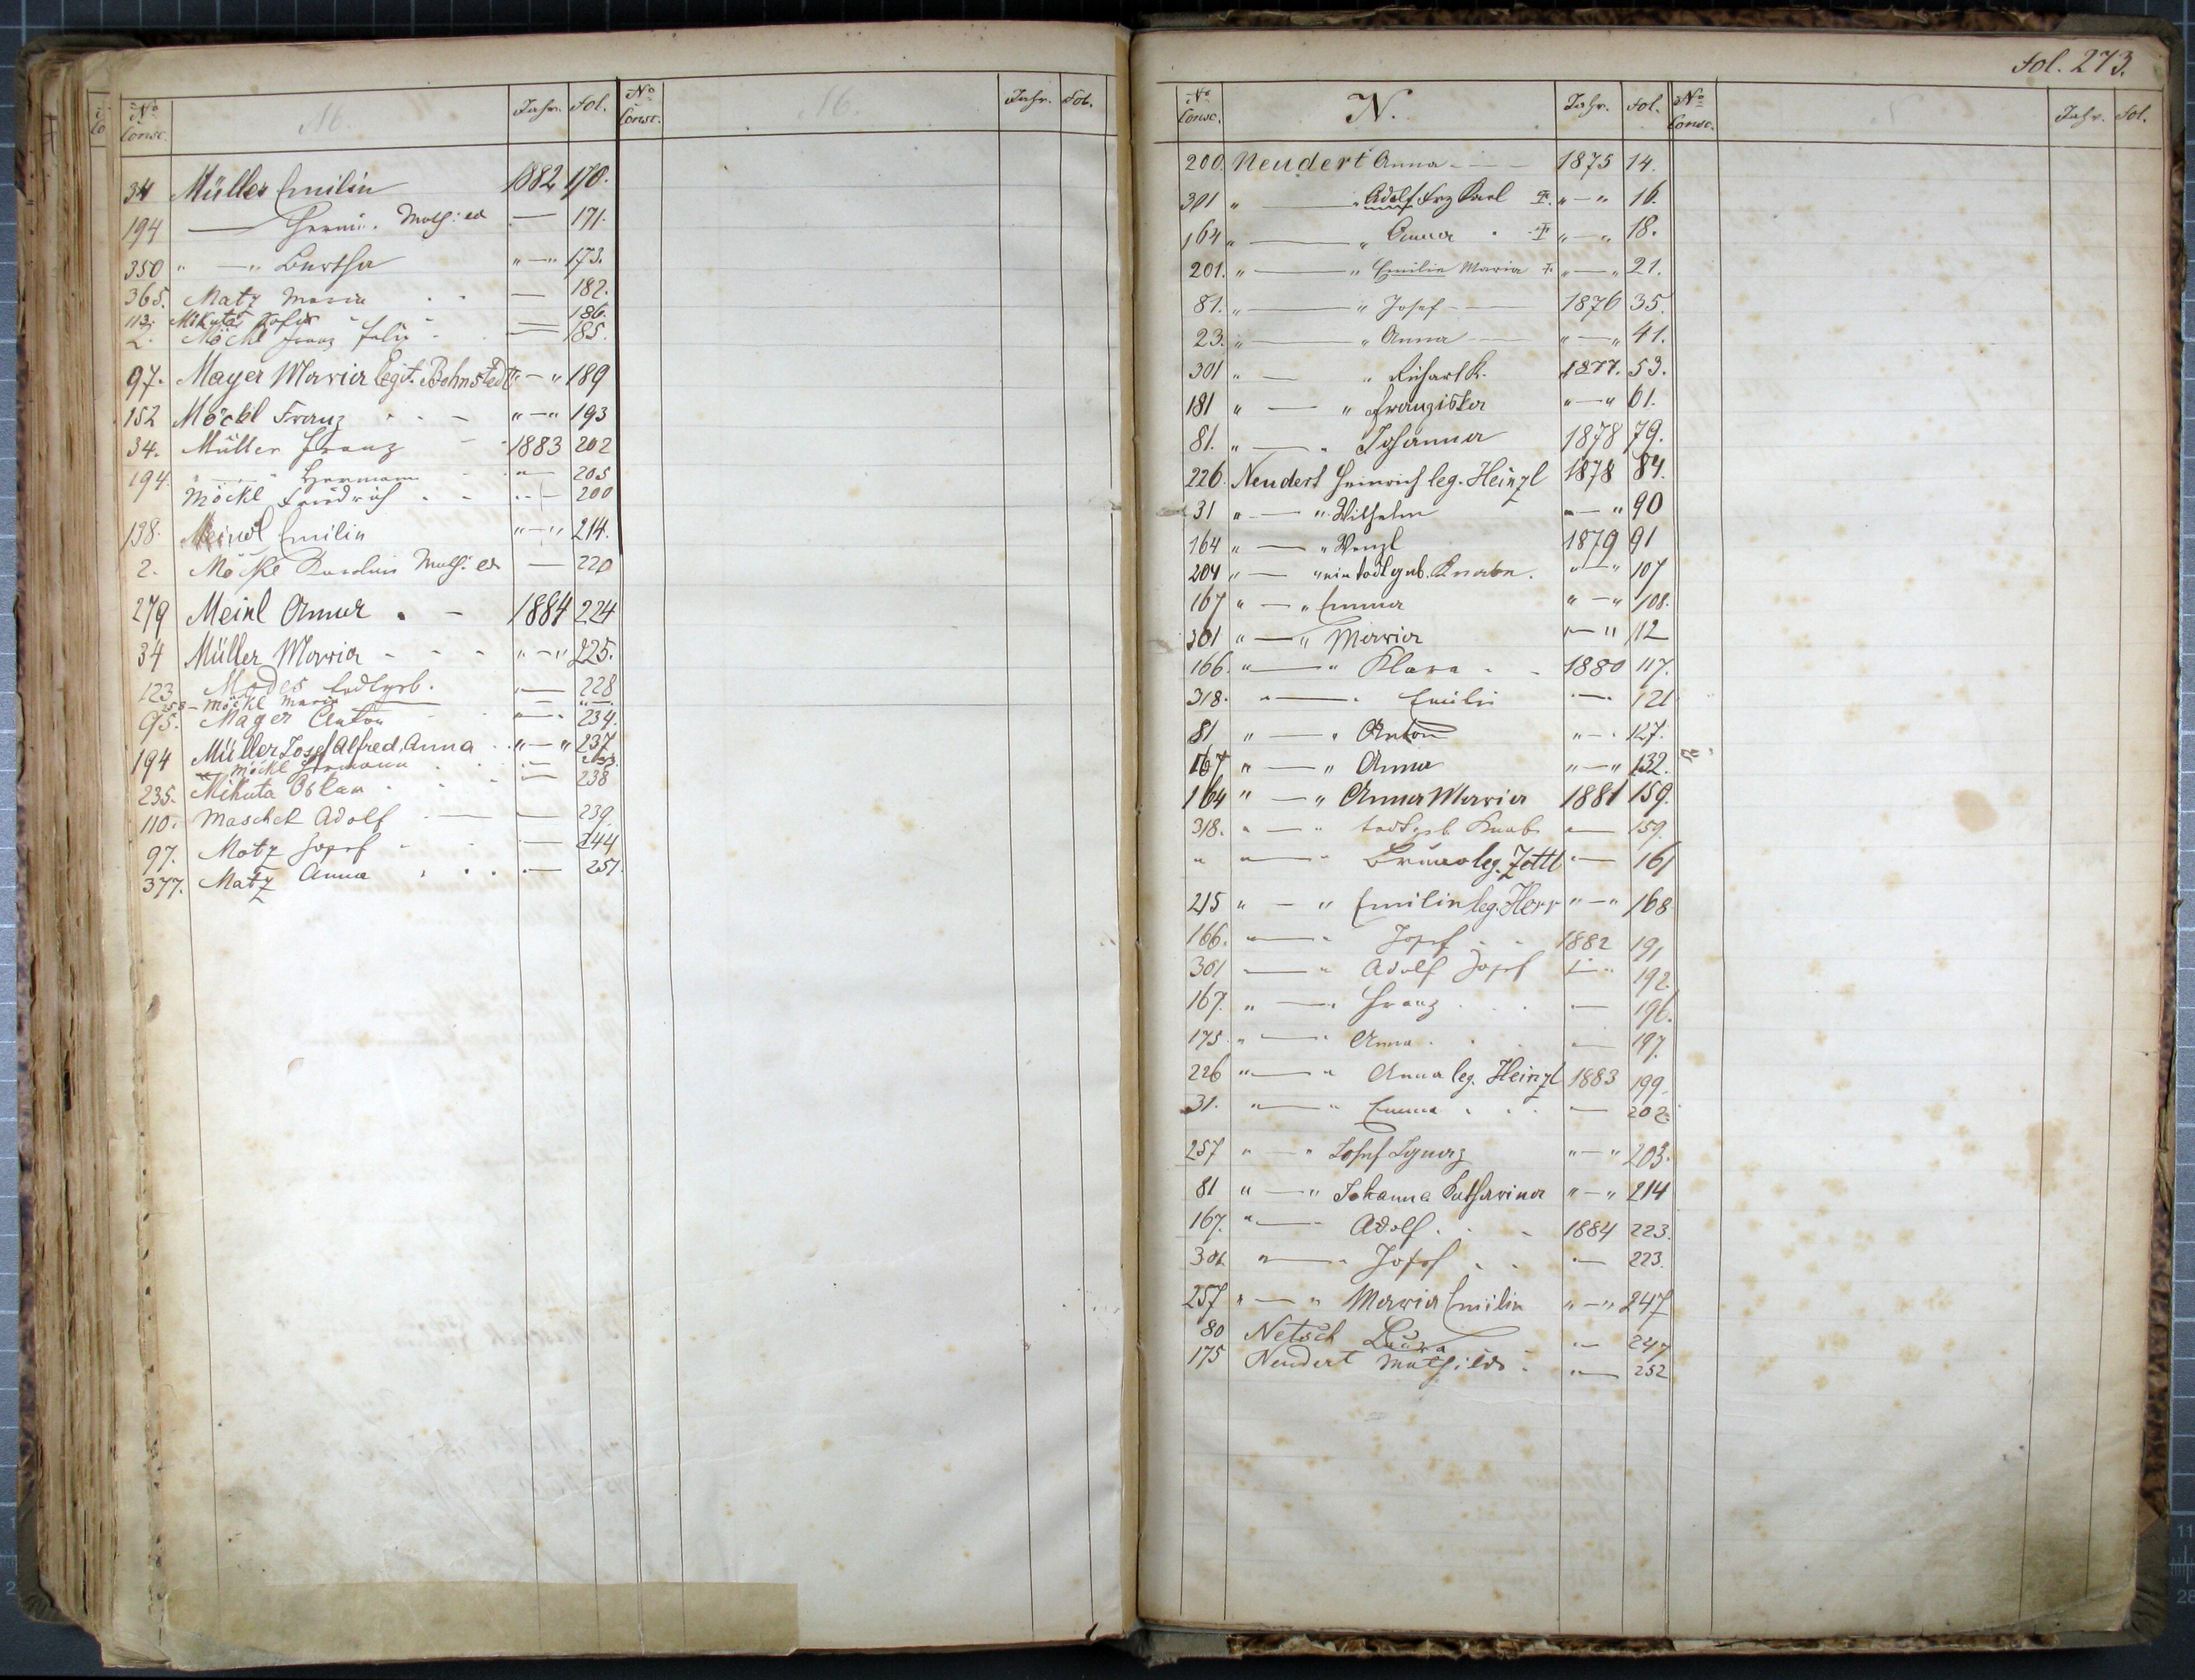 No Consc. M. Jahr. Fol. No Consc. M. Jahr. Fol.
34 Müller Emilie 1882 170.
194 — Math: ed — 171.
350 " — " Bertha " — " 173.
365. Matz Maria — 182.
113. Mikuta Josef — 186.
2. Möckl Franz — 185.
97. Mayer Maria legit. Bohnstedt " — " 189
152 Möckl Franz " — " 193
34. Müller Franz 1883 202
194. " — " Hermann " — 205
Möckl Friedrich " — 200
138. Meindl Emilie " — " 214.
2. Möckl Karolin Math: ed — 220
279 Meinl Anna 1884 224
34 Müller Maria " — " 225.
123 Modes todtgeb. " — 228
258 – Möckl Maria — " —
95. Mayer Anton " — 234.
194 Müller Josef Alfred, Anna " — " 237
Möckl Hermann " —
235. Mikuta Oskar " — 238
110. Maschek Adolf — 239.
97. Motz Josef — 244
377. Matz Anna — 251.
Fol. 273.
No Consc. N. Jahr. Fol. No Consc. N Jahr. Fol.
200. Neudert Anna — 1875 14.
301 " — " Adolf Frz Karl " — " 16.
164 " — " Anna " — " 18.
201. " — " Emilie Maria " — " 21.
81. " — " Josef — 1876 35.
23. " — " Anna — " — " 41.
301 " — " Richard K. 1877. 53.
181 " — " Franziska " — " 61.
81. " — " Johanna 1878 79.
226. Neudert Heinrich leg. Heinzl 1878 84.
31 " — " Wilhelm " — " 90
164 " — " Wenzl 1879 91
204 " — " ein todtgeb. Knabe. " — " 107
167 " — " Emma " — " 108.
301 " — " Maria " — " 112
166. " — " Klara 1880 117.
318. " — " Emilie " — 121
81 " — " Anton " — " 127.
167 " — " Anna " — " 132.
164 " — " Anna Maria 1881 159.
318. " — " todtgeb. Knabe " — 159.
" " — " Bruno leg. Zettl " — 161
215 " — " Emilie leg. Herr " — " 168
166. " — " Josef 1882 191
301 " — " Adolf Josef " — " 192.
167. " — " Franz — 196.
175. " — " Anna — 197.
226 " — " Anna leg. Heinzl 1883 199.
31. " — " Emma — 202.
257 " — " Josef Ignaz " — " 203.
81 " — " Johanna Katharina " — " 214
167. " — " Adolf 1884 223.
301 " — " Josef — 223.
257 " — " Maria Emilie " — " 247
80 Netsch Laura " — 247
175 Neudert Mathilde " — 252